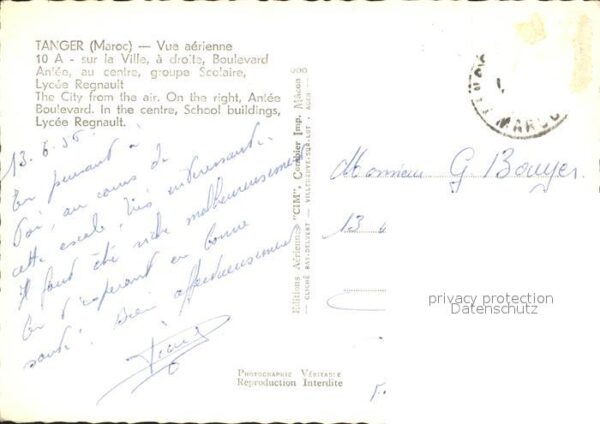 TANGER (Maroc) — Vue aérienne
10 A - sur la Ville, à droite, Boulevard
Antée, au centre, groupe Scolaire,
Lycée Regnault
The City from the air. On the right, Antée
Boulevard. In the centre, School buildings,
Lycée Regnault.
13.6.56
En pensant à
toi, au cours de
cette escale très intéressante.
Il fait été malheureusement
En t'espérant en bonne
santé. Bien affectueusement
Editions Aériennes "CIM", Combier Imp. Mâcon
PHOTOGRAPHIE VÉRITABLE
Reproduction Interdite
MAROC
Monsieur G. Bouyer.
13
privacy protection
Datenschutz